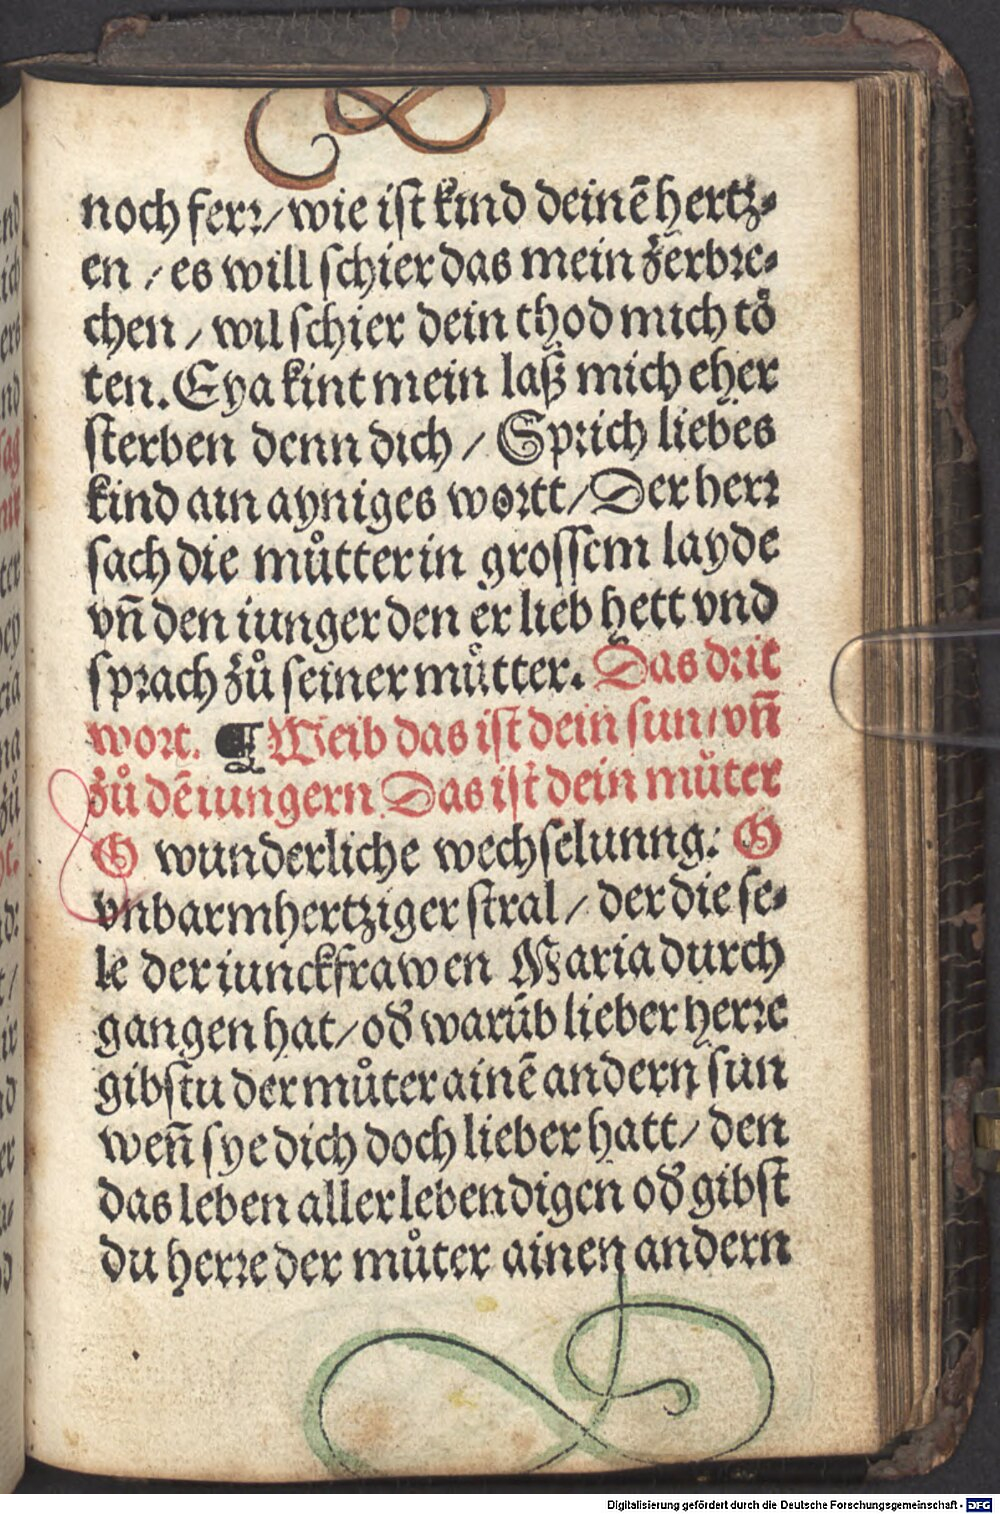 noch ferr/ wie ist kind deinē hertz⸗
en / es will schier das mein zerbre⸗
chen / wil schier dein thod mich toͤ
ten. Eya kint mein laß mich eher
sterben denn dich / Sprich liebes
kind ain ayniges wortt/ Der herr
sach die muͦtter in grossem layde
vn̄ den iunger den er lieb hett vnd
sprach zuͦ seiner muͦtter. Das drit
wort. ¶ Weib das ist dein sun/ vn̄
zuͦ dē iungern Das ist dein muͦter
O wunderliche wechselunng: O
vnbarmhertziger stral / der die se⸗
le der iunckfrawen Maria durch
gangen hat/ od̕ warūb lieber herre
gibstu der muͦter ainē andern sun
wen̄ sye dich doch lieber hatt/ den
das leben aller lebendigen od̕ gibst
du herre der muͦter ainen andern
Digitalisierung gefördert durch die Deutsche Forschungsgemeinschaft - DFG